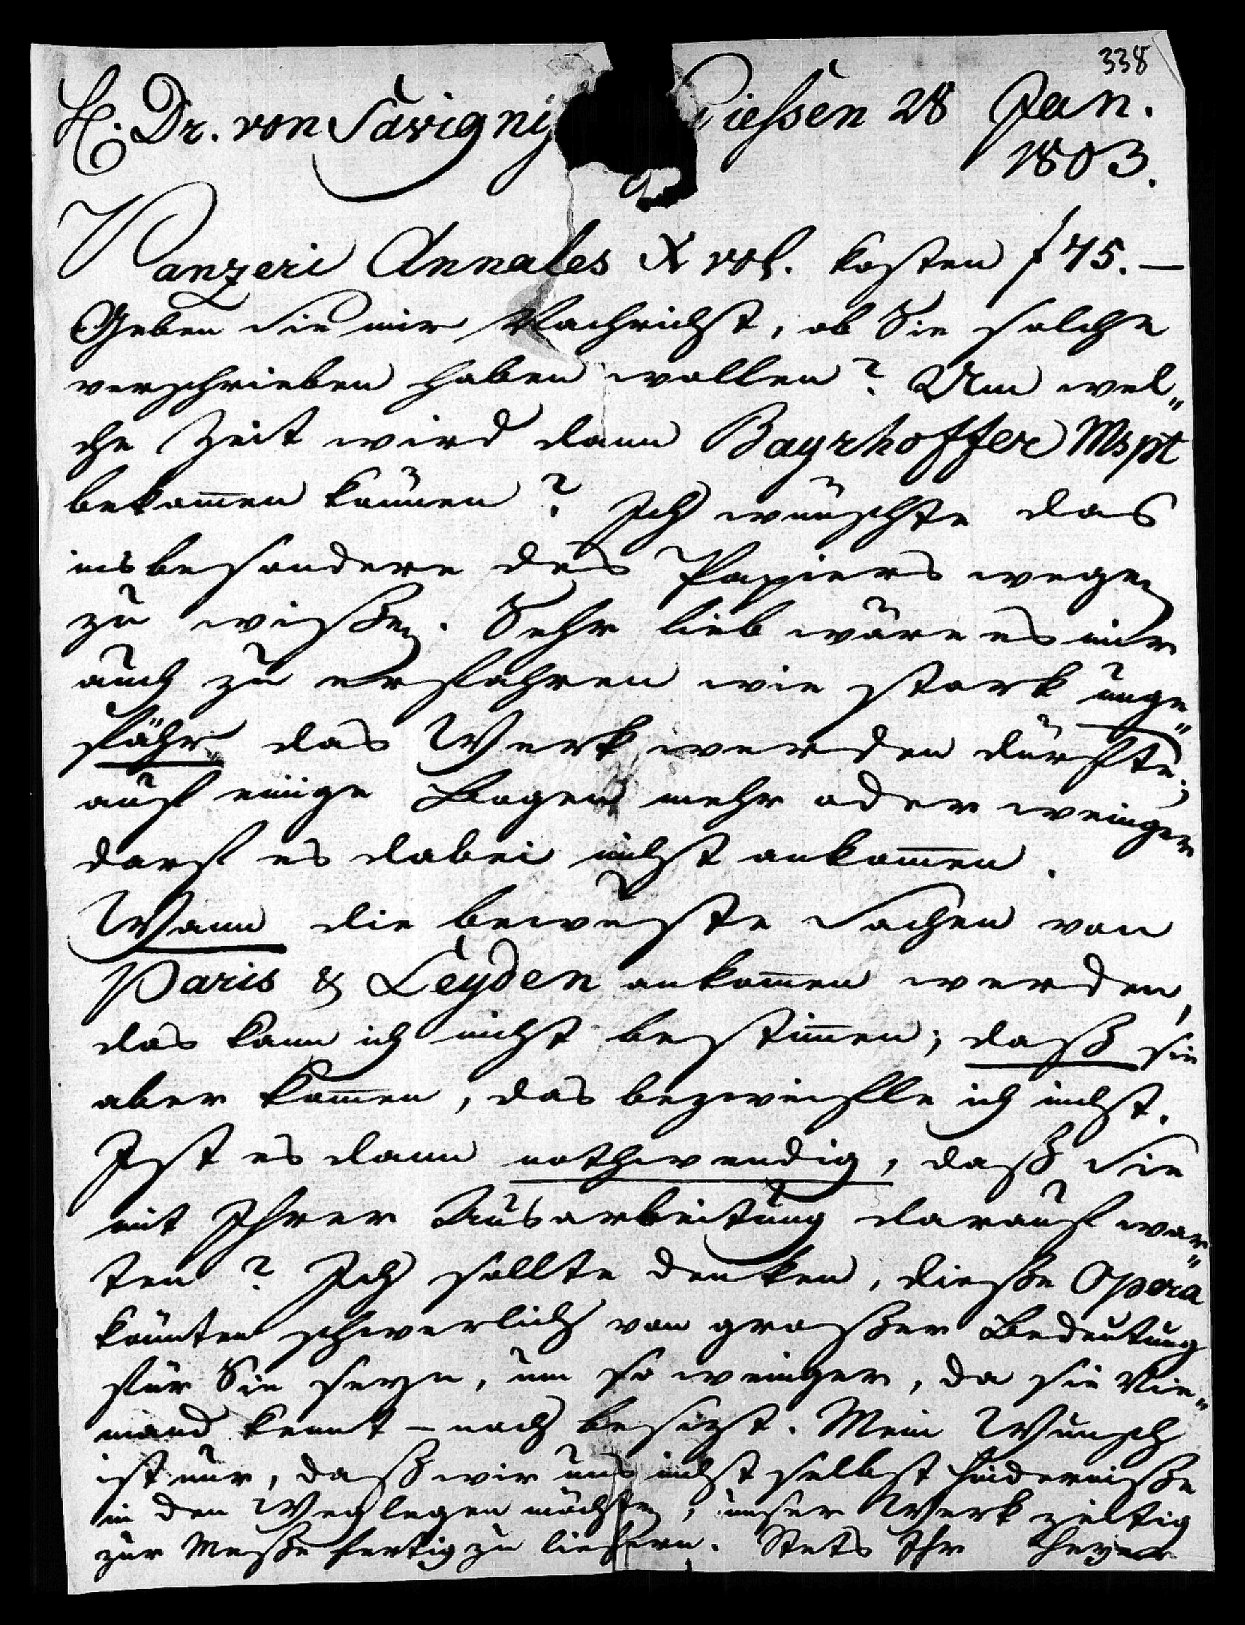 338
H. Dr. von Savigny Giessen 28 Jan.
1803.
Panzeri Annales X vol. kosten f 75. —
Geben Sie mir Nachricht, ob Sie solche
verschrieben haben wollen? Um wel„
che Zeit wird dann Bayrhoffer Mspt
bekom̅en können? Ich wünschte das
insbesondere des Papiers wegen
zu wißen. Sehr lieb wäre es mir
auch zu erfahren wie stark unge„
fähr das Werk werden dürfte;
auf einige Bogen mehr oder weniger
darf es dabei nicht ankom̅en.
Wann die bewußte Sachen von
Paris & Leyden ankom̅en werden,
das kann ich nicht bestim̅en; daß sie
aber kom̅en, das bezweifle ich nicht.
Ist es dann nothwendig, daß Sie
mit Ihrer Ausarbeitung darauf war„
ten? Ich sollte denken, dieße Opera
könnten schwerlich von großer Bedeutung
für Sie seyn, um so weniger, da sie Nie„
mand kennt – noch besizt. Mein Wunsch
ist nur, daß wir uns nicht selbst Hinderniße
in den Weg legen möchten, unser Werk zeitig
zur Meße fertig zu liefern. Stets Ihr Heyer